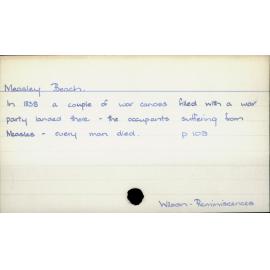 Measley Beach.
In 1838 a couple of war canoes filled with a war
party landed there - the occupants suffering from
Measles - every man died. p 103
Wilson - Reminiscences